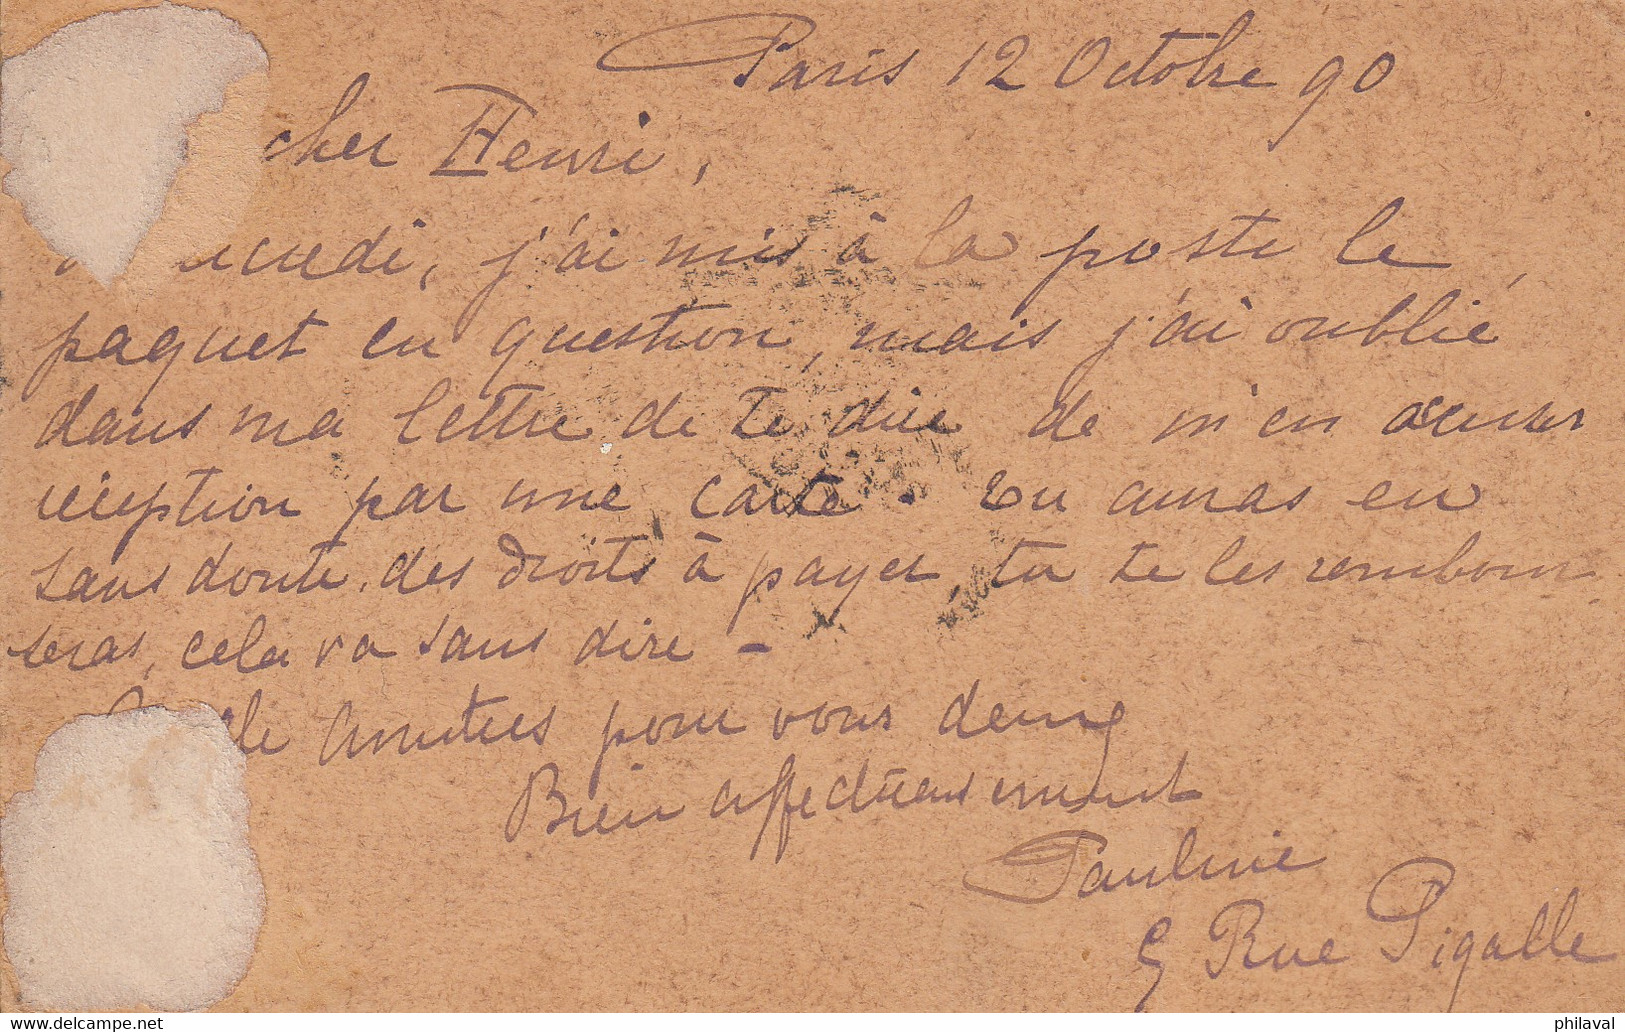 Paris 12 Octobre 90
cher Henri,
credi, j'ai mis à la poste le
paquet en question, mais j'ai oublié
dans ma lettre de te dire de m'en accuser
réception par une carte. Tu auras en
sans doute des droits à payer, tu te les rembour
seras, cela va sans dire -
amitiés pour vous deux
Bien affectueusement
Pauline
5 Rue Pigalle
philaval